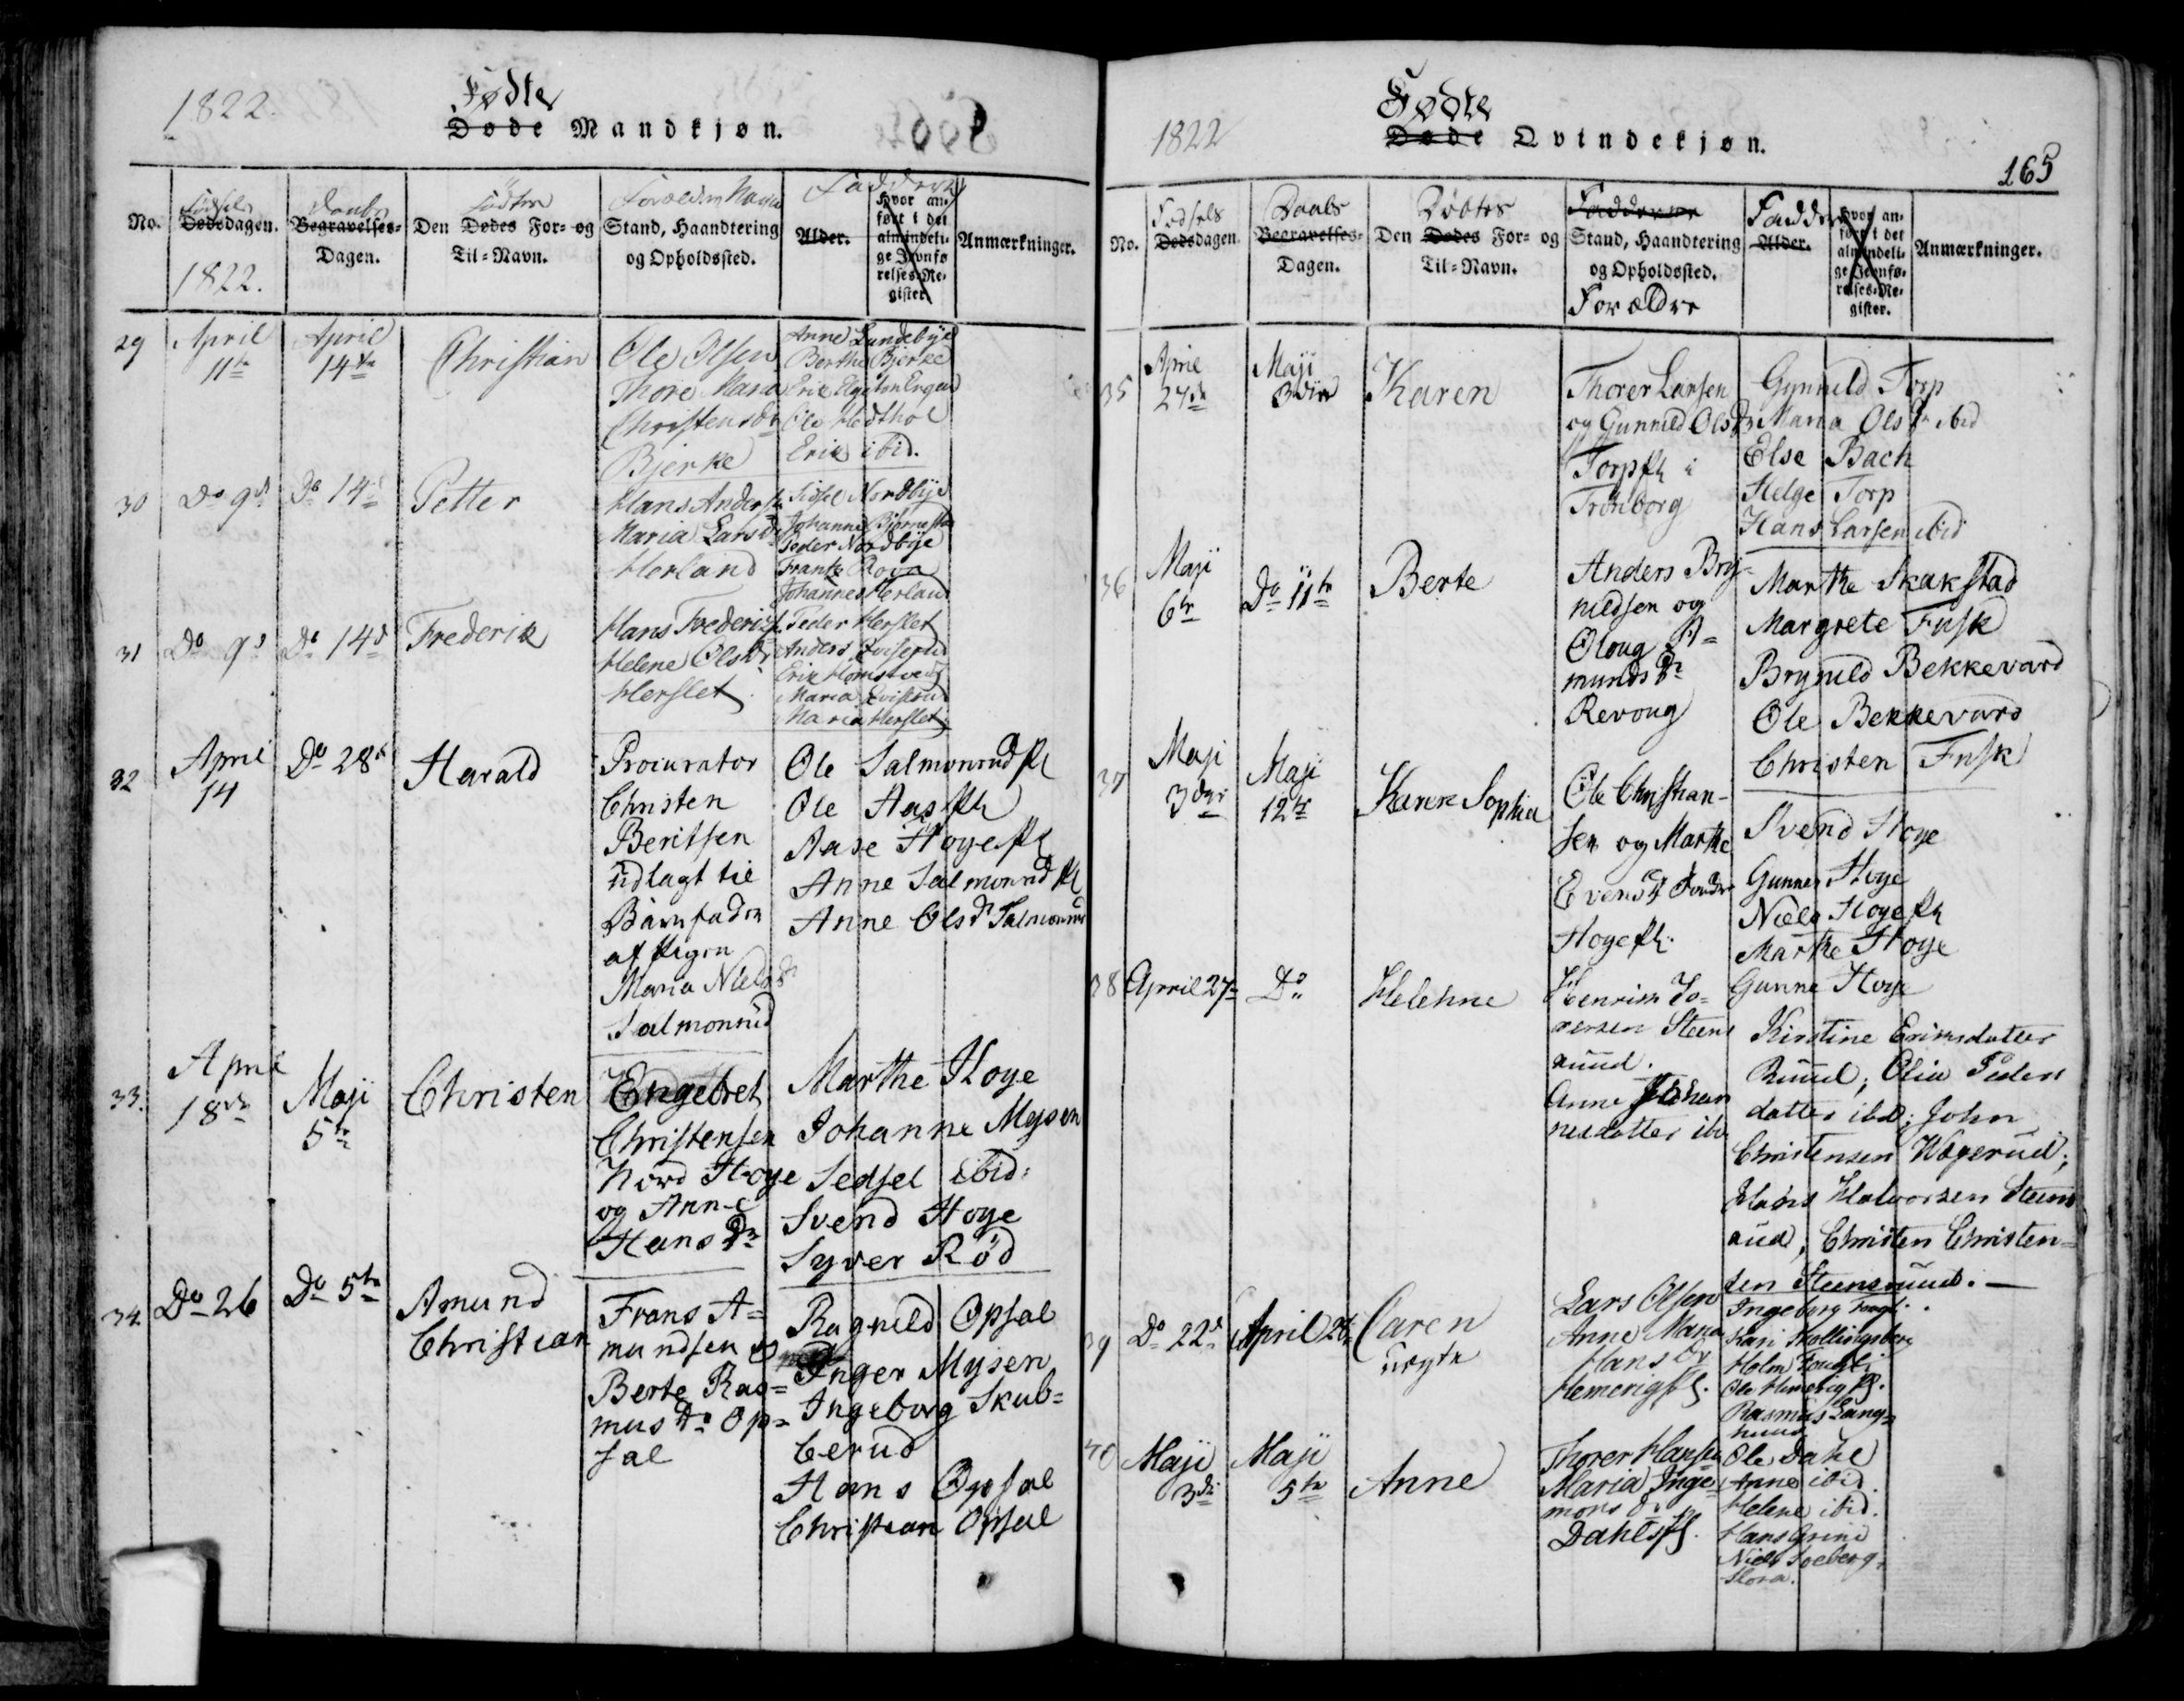 1822.
Fødte
Døde Mandkjøn.
No.
Fødsels
Dødsdagen.
1822.
Daabs
Begravelses-
Dagen.
Den Dødes For- og
Til-Navn.
Forældres Navne
Stand, Haandtering
og Opholdssted.
Faddere
Alder.
Hvor an-
ført i det
almindeli-
ge Jevnfø-
relses-Re-
gister.
Anmærkninger.
29
April
11te
April
14de
Christian
Ole Olsen
Thore Maria
Christensdr
Bjerke
Anne Lundebye
Berthe Bjerke
Erik
Ole
Erik ibid.
30
Do 9de
Do 14de
Petter
Hans Anders
Maria Larsdr
Herland
Sidsel Nordbye
Johanne
Peder Nordbye
Frants
Johannes Herland
31
Do 9d
Do 14d
Frederik
Hans Frederik
Helene Olsdr
Herslet
Peder Herslet
Anders
Erik
Maria
Maria Herslet
32
April
14
Do 28d
Harald
Procurator
Christen
Beritsen
udlagt til
Barnfader
af Pigen
Maria Nielsdr
Salmonrud
Ole Salmonrud
Ole Aas
Aase Høye
Anne Salmonrud
Anne Olsdr Salmonrud
33.
April
18de
Maji
5te
Christen
Engebret
Christensen
Nord Høye
og Anne
Hansdr
Marthe Høye
Johanne Mysen
Sedsel ibid:
Svend Høye
Syver Rød
34.
Do 26
Do 5te
Amund
Christian
Frans A=
mundsen og
Berte Ras=
musdr Op=
sal
Ragnild Opsal
Inger Mysen
Ingeborg Skub=
berud
Hans Opsal
Christian Opsal
1822
Fødte
Døde Qvindekjøn.
165
No.
Fødsels
Dødsdagen.
Daabs
Begravelses-
Dagen.
Døbtes
Den Dødes For- og
Til-Navn.
Fadderne
Stand, Haandtering
og Opholdssted.
Forældre
Faddere
Alder.
Hvor an-
ført i det
almindeli-
ge Jevnfø-
relses-Re-
gister.
Anmærkninger.
35
April
27de
Maji
3die
Karen
Thorer Larsen
og Gunnild Olsdr
Torp i
Trønborg
Gunnild Torp
Maria Olsdr ibid
Else Bach
Helge Torp
Hans Larsen ibid
36
Maji
6te
Do 11te
Berte
Anders Bry-
nildsen og
Oloug A=
mundsdr
Revoug
Marthe Skakstad
Margrete Fusk
Brynild Bekkevard
Ole Bekkevard
Christen Fusk
37
Maji
3die
Maji
12te
Karen Sophia
Ole Christian-
sen og Marthe
Evensdr
Høye
Svend Høye
Gunner Høye
Niels Høye
Marthe Høye
Gunne Høye
38
April 27
Do
Helehne
Henrik To-
rersen Steens
ruud.
Anne Johan
nesdatter ibd
Kirstine Eriksdatter
Ruud; Olia Peders
datter ibd; John
Christensen Wøyerud;
Hans Halvorsen Steens
ruud; Christen Christen=
sen Steensruud.
39
Do 22d
April 28
Caren
uægte
Lars Olsen
Anne Maria
Hansdr
Hemerig
Ingeborg
Kari
Holm
Ole Hemerig
Rasmus Lang=
40
Maji
3die
Maji
5te
Anne
Thorer Hansen
Maria Inge=
morsdr
Dahls
Ole Dahl
Anne ibid.
Helene ibid.
Hans Grini
Niels